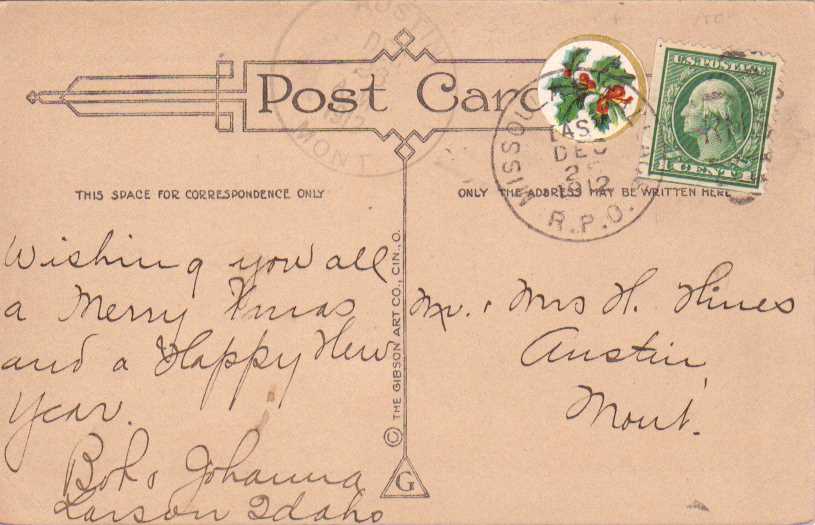 AUSTIN
DEC
23
1912
MONT
Post Card
U.S. POSTAGE
1 CENT 1
MISSOU
EAST
DEC
2
1912
R.P.O.
THIS SPACE FOR CORRESPONDENCE ONLY
ONLY THE ADDRESS MAY BE WRITTEN HERE
Wishing you all
a Merry Xmas
and a Happy New
Year.
Bob & Johanna
Larson Idaho
© THE GIBSON ART CO., CIN., O.
G
Mr. & Mrs H. Hines
Austin,
Mont.